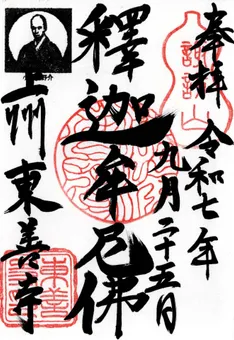 奉拝
令和七年
九月二十五日
釋迦牟尼佛
上州
東善寺